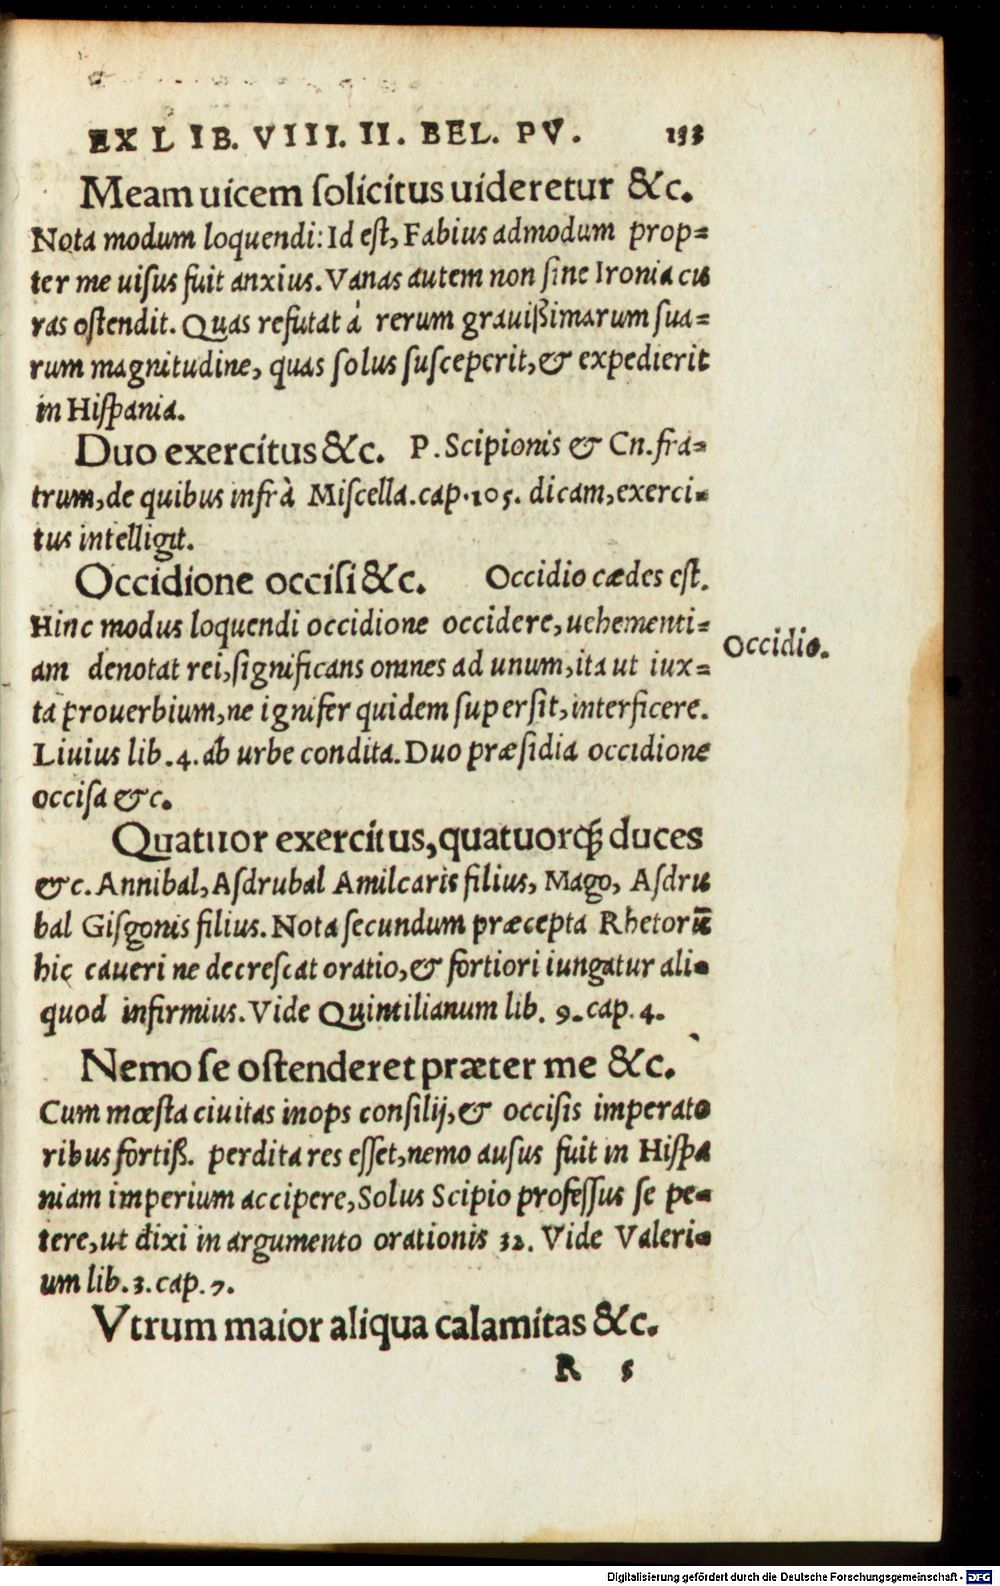 EX LIB. VIII. II. BEL. PV. 133
Meam uicem ſolicitus uideretur &c.
Nota modum loquendi: Id eſt, Fabius admodum prop=
ter me uiſus fuit anxius. Vanas autem non ſine Ironia cu
ras oſtendit. Quas refutat à rerum grauißimarum ſua=
rum magnitudine, quas ſolus ſuſceperit, & expedierit
in Hiſpania.
Duo exercitus &c. P. Scipionis & Cn. fra=
trum, de quibus infrà Miſcella. cap. 105. dicam, exerci=
tus intelligit.
Occidione occiſi &c. Occidio cædes eſt.
Hinc modus loquendi occidione occidere, uehementi=
Occidio.
am denotat rei, ſignificans omnes ad unum, ita ut iux=
ta prouerbium, ne ignifer quidem ſuperſit, interficere.
Liuius lib. 4. ab urbe condita. Duo præſidia occidione
occiſa &c.
Quatuor exercitus, quatuorq́; duces
&c. Annibal, Aſdrubal Amilcaris filius, Mago, Aſdru
bal Giſgonis filius. Nota ſecundum præcepta Rhetorū
hic caueri ne decreſcat oratio, & fortiori iungatur ali=
quod infirmius. Vide Quintilianum lib. 9. cap. 4.
Nemo ſe oſtenderet præter me &c.
Cum mœſta ciuitas inops conſilij, & occiſis imperato
ribus fortiß. perdita res eſſet, nemo auſus fuit in Hiſpa
niam imperium accipere, Solus Scipio profeſſus ſe pe=
tere, ut dixi in argumento orationis 32. Vide Valeri=
um lib. 3. cap. 7.
Vtrum maior aliqua calamitas &c.
R 5
Digitalisierung gefördert durch die Deutsche Forschungsgemeinschaft - DFG